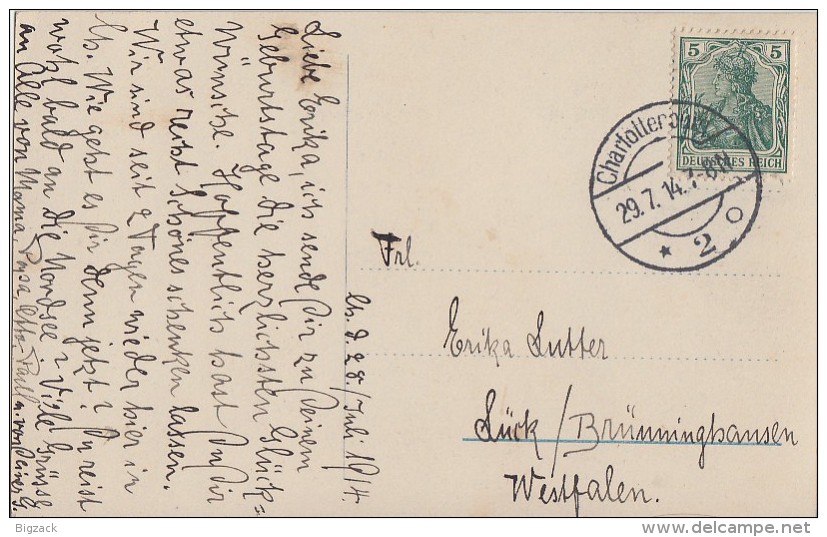 Liebe Erika, ich sende Dir zu Deinem
Geburtstage die herzlichsten Glück=
wünsche. Hoffentlich hast Du Dir
etwas recht Schönes schenken lassen.
Wir sind seit 2 Tagen wieder hier in
Ch. Wie geht es Dir denn jetzt? Du reist
wohl bald an die Nordsee? Viele Grüsse
an Alle von Mama, Papa, Paul u. von Deiner G.
Ch. d. 28/Juli 1914.
5 5
DEUTSCHES REICH
Charlottenburg
29.7.14. 7-8N
* 2 o
Frl.
Erika Lutter
Lück/Brünninghausen
Westfalen.
Bigzack
delcampe.net